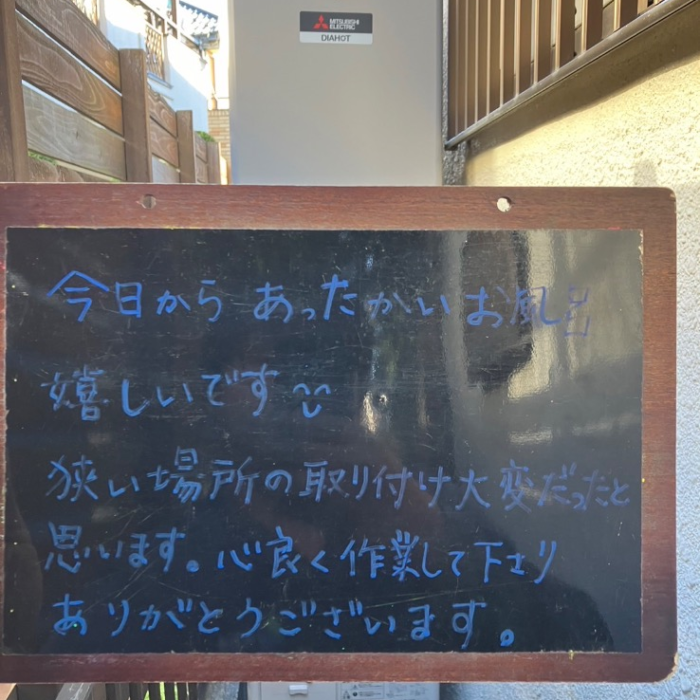 MITSUBISHI
ELECTRIC
DIAHOT
今日から あったかいお風呂
嬉しいです
狭い場所の取り付け大変だったと
思います。心良く作業して下さり
ありがとうございます。